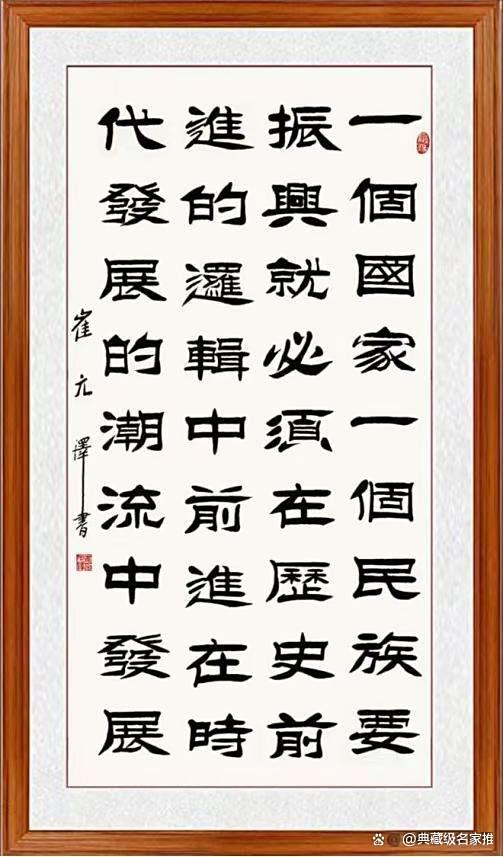 一個國家一個民族要
振興就必須在歷史前
進的邏輯中前進在時
代發展的潮流中發展
崔元澤書
@典藏级名家推